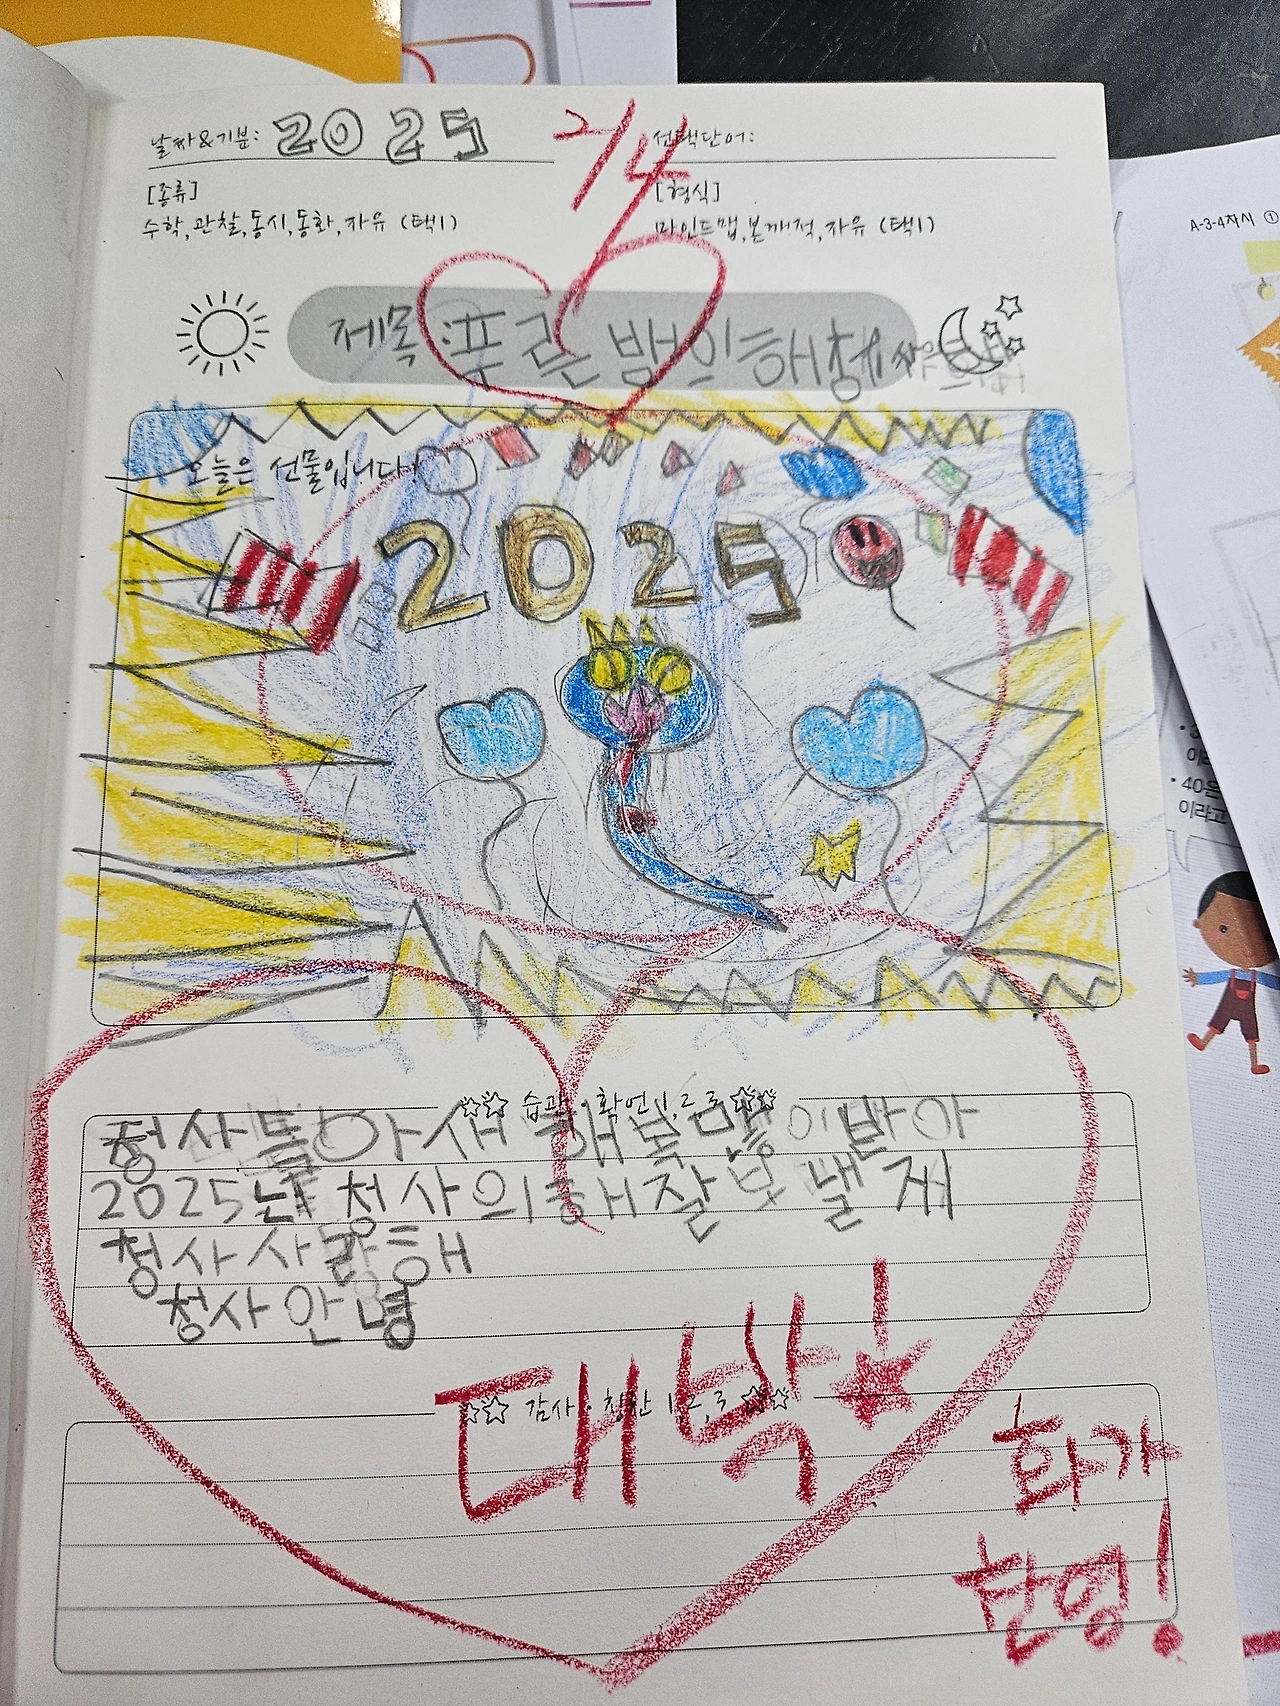 날짜&기분: 2025 2/4 선택단어:
[종류] [형식]
수학,관찰,동시,동화,자유 (택1) 마인드맵,본깨적,자유 (택1)
제목:푸른 뱀의해청사
오늘은 선물입니다!
2025
습관·확언 1,2,3
청사 복아 새해복많이받아
2025년 청사의해잘보낼게
청사 사랑해
청사 안녕
대박!
감사·칭찬 1,2,3
화가
찬영!
A-3-4차시 ①
40은
이라고